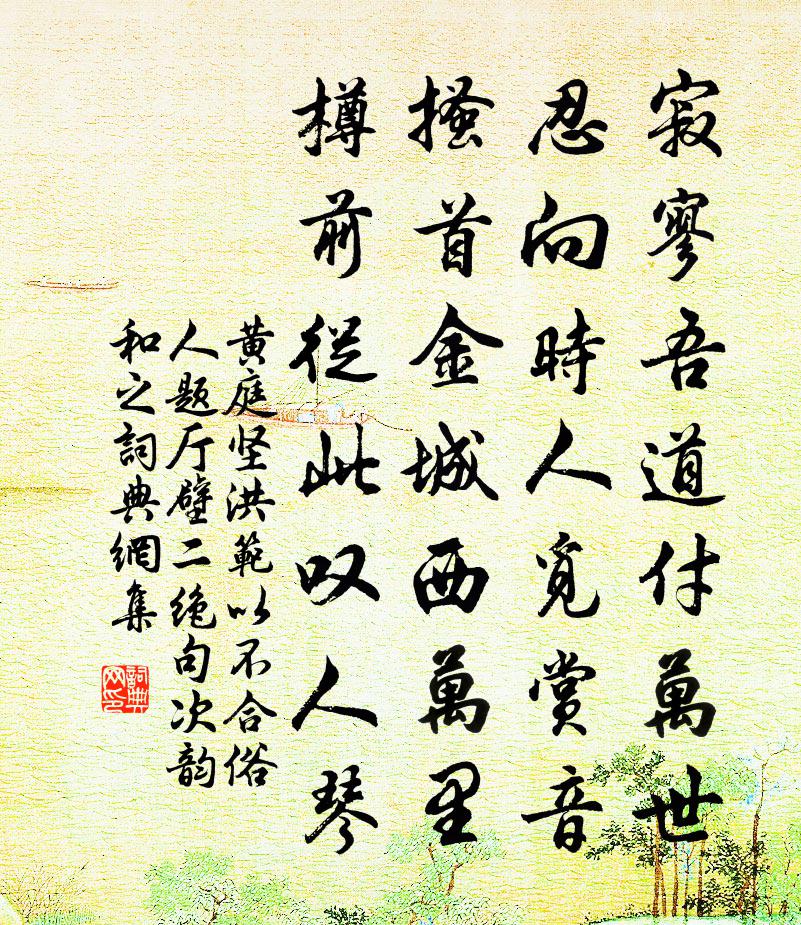 寂寥吾道付萬世
忍向時人覓賞音
搔首金城西萬里
樽前從此叹人琴
黄庭坚洪範以不合俗
人題厅壁二绝句次韵
和之詞典網集
詞典网印